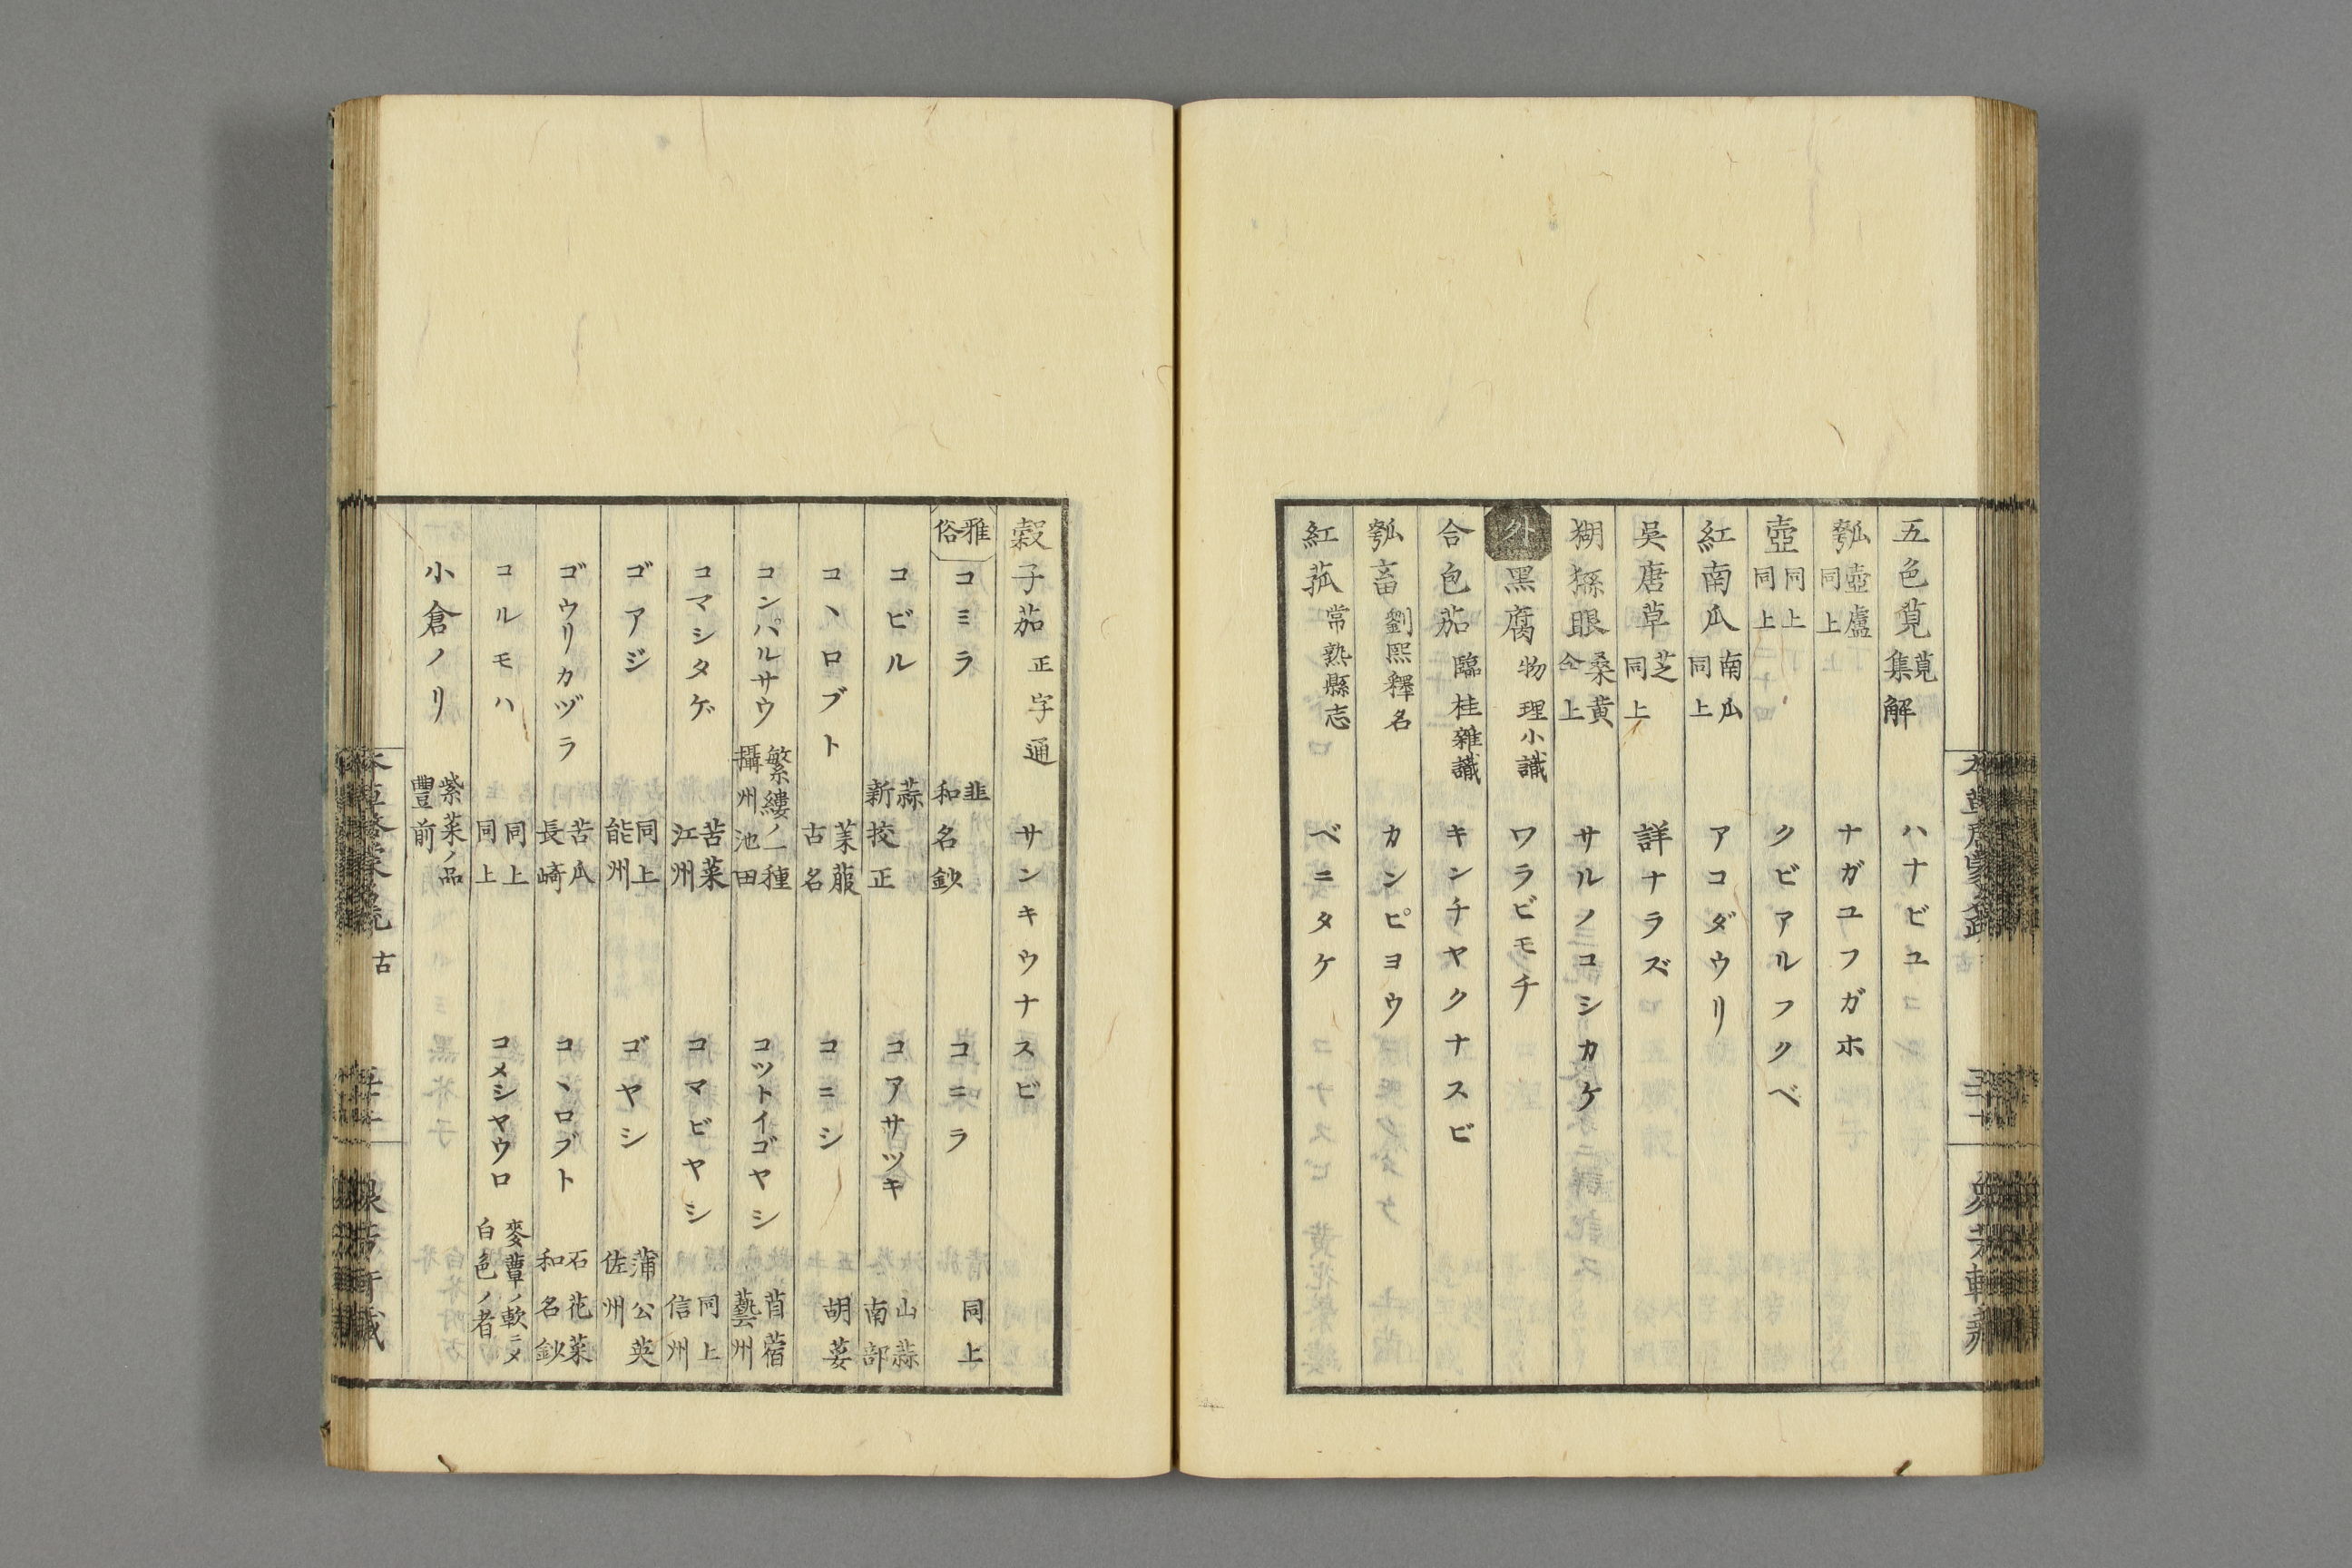 五色莧 莧集解 ハナビユ
瓠 壺盧同上 ナガユフガホ
壺 同上同上 クビアルフクベ
紅南瓜 南瓜同上 アコダウリ
吳唐草 芝同上 詳ナラズ
猢猻眼 桑黃仝上 サルノコシカケ
外 黑腐 物理小識 ワラビモチ
合包茄 臨桂雜識 キンチヤクナスビ
瓠畜 劉熈釋名 カンピヨウ
紅菰 常熟縣志 ベニタケ
穀子茄 正字通 サンキウナスビ
雅俗 コミラ 韭和名鈔 コニラ 同上
コビル 蒜新挍正 コアサツキ 山蒜南部
コヽロブト 古名 コニシ 胡荽
コンパルサウ 繁縷ノ一種攝州池田 コツトイゴヤシ 苜蓿藝州
コマシタケ 苦菜江州 コマビヤシ 同上信州
ゴアジ 同上能州 ゴヤシ 蒲公英佐州
ゴウリカヅラ 苦瓜長崎 コヽロブト 石花菜和名鈔
コルモハ 同上同上 コメシヤウロ 麥蕈ノ軟ニメ白色ノ者
小倉ノリ 紫菜ノ品豐前
古